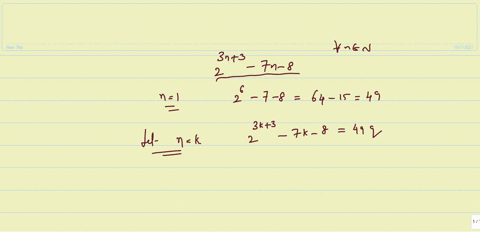 ∀ n ∈ N
2^{3n+3} - 7n - 8
n = 1 2^6 - 7 - 8 = 64 - 15 = 49
let n = k 2^{3k+3} - 7k - 8 = 49 q